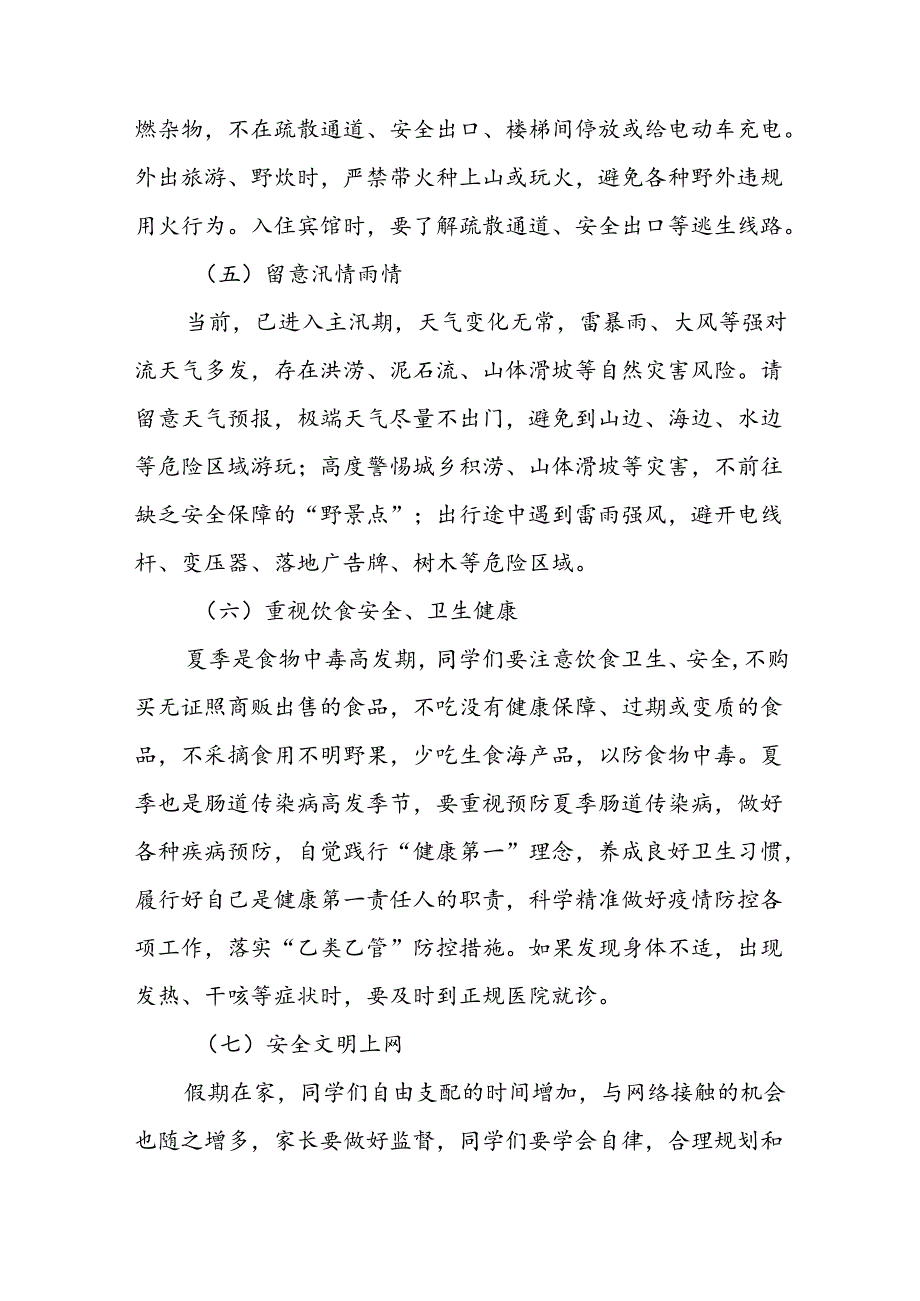 燃杂物，不在疏散通道、安全出口、楼梯间停放或给电动车充电。
外出旅游、野炊时，严禁带火种上山或玩火，避免各种野外违规
用火行为。入住宾馆时，要了解疏散通道、安全出口等逃生线路。
（五）留意汛情雨情
当前，已进入主汛期，天气变化无常，雷暴雨、大风等强对
流天气多发，存在洪涝、泥石流、山体滑坡等自然灾害风险。请
留意天气预报，极端天气尽量不出门，避免到山边、海边、水边
等危险区域游玩；高度警惕城乡积涝、山体滑坡等灾害，不前往
缺乏安全保障的“野景点”；出行途中遇到雷雨强风，避开电线
杆、变压器、落地广告牌、树木等危险区域。
（六）重视饮食安全、卫生健康
夏季是食物中毒高发期，同学们要注意饮食卫生、安全，不购
买无证照商贩出售的食品，不吃没有健康保障、过期或变质的食
品，不采摘食用不明野果，少吃生食海产品，以防食物中毒。夏
季也是肠道传染病高发季节，要重视预防夏季肠道传染病，做好
各种疾病预防，自觉践行“健康第一”理念，养成良好卫生习惯，
履行好自己是健康第一责任人的职责，科学精准做好疫情防控各
项工作，落实“乙类乙管”防控措施。如果发现身体不适，出现
发热、干咳等症状时，要及时到正规医院就诊。
（七）安全文明上网
假期在家，同学们自由支配的时间增加，与网络接触的机会
也随之增多，家长要做好监督，同学们要学会自律，合理规划和